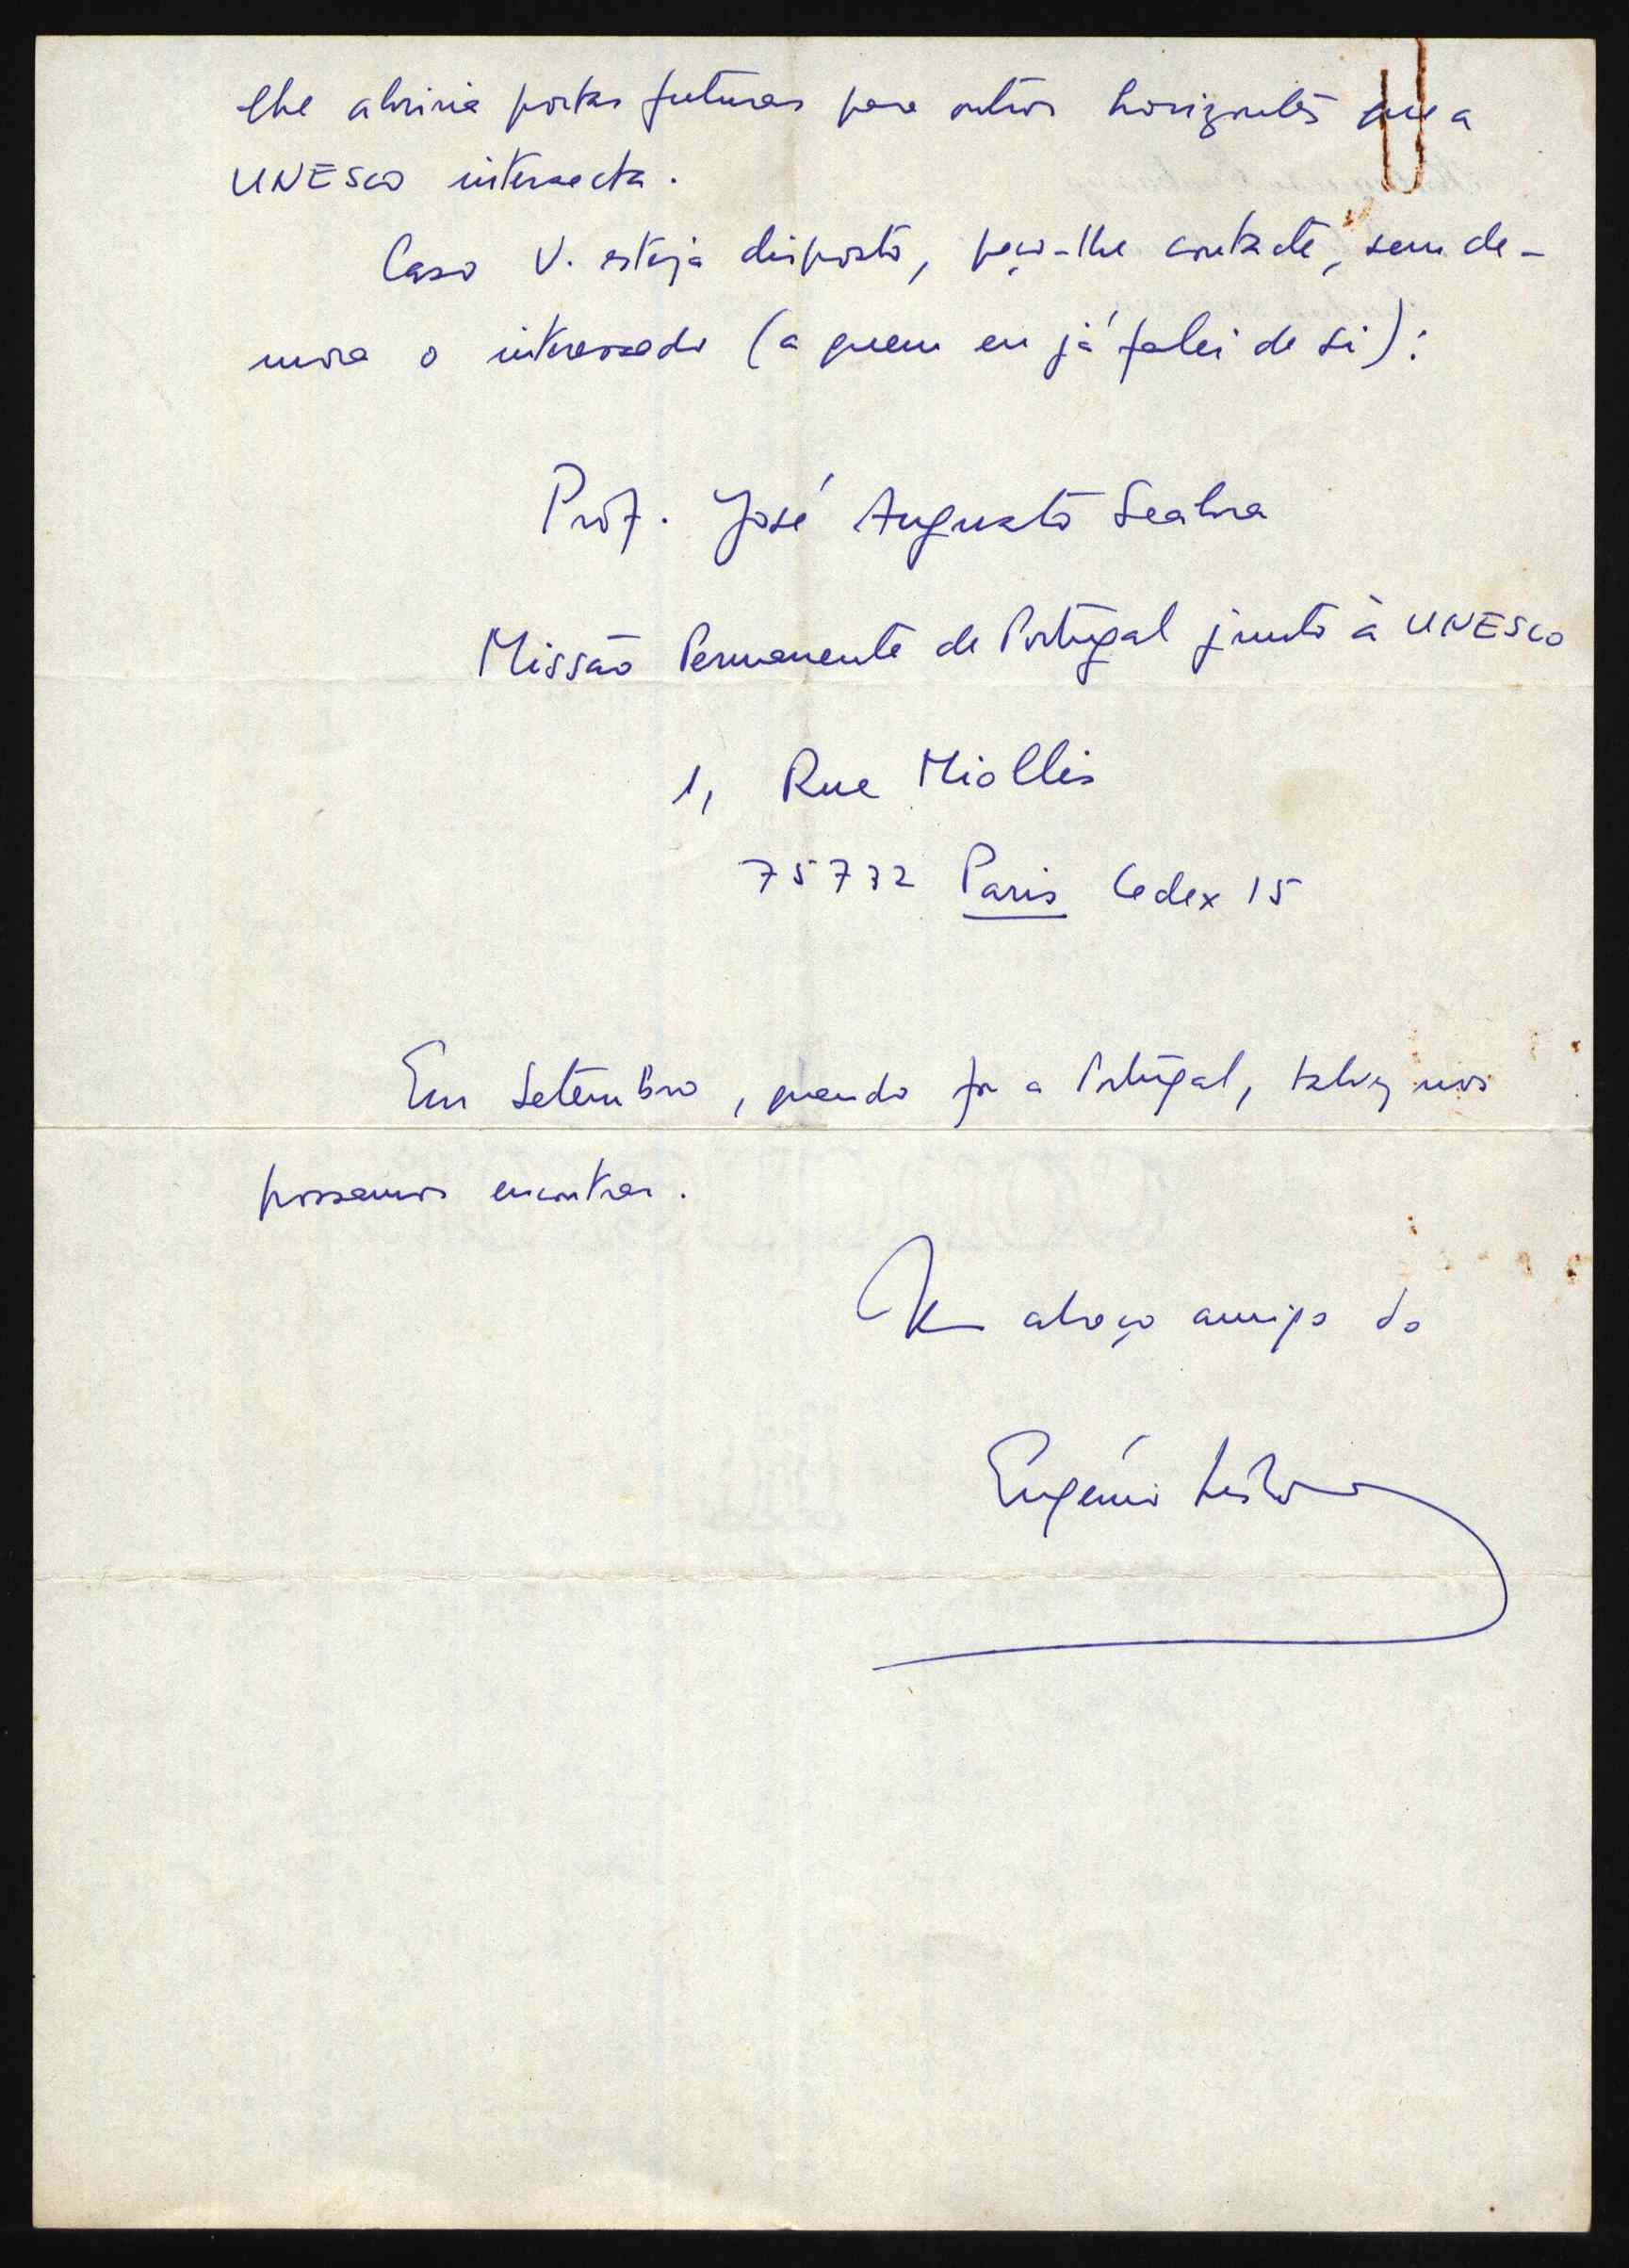 lhe abriria portas futuras para outros horizontes que a
UNESCO intersecta.
Caso V. esteja disposto, peço-lhe contacte, sem de-
mora o interessado (a quem eu já falei de si):
Prof. José Augusto Seabra
Missão Permanente de Portugal junto à UNESCO
1, Rue Miollis
75732 Paris Cedex 15
Em Setembro, quando for a Portugal, talvez nos
possamos encontrar.
Um abraço amigo do
Eugénio Lisboa